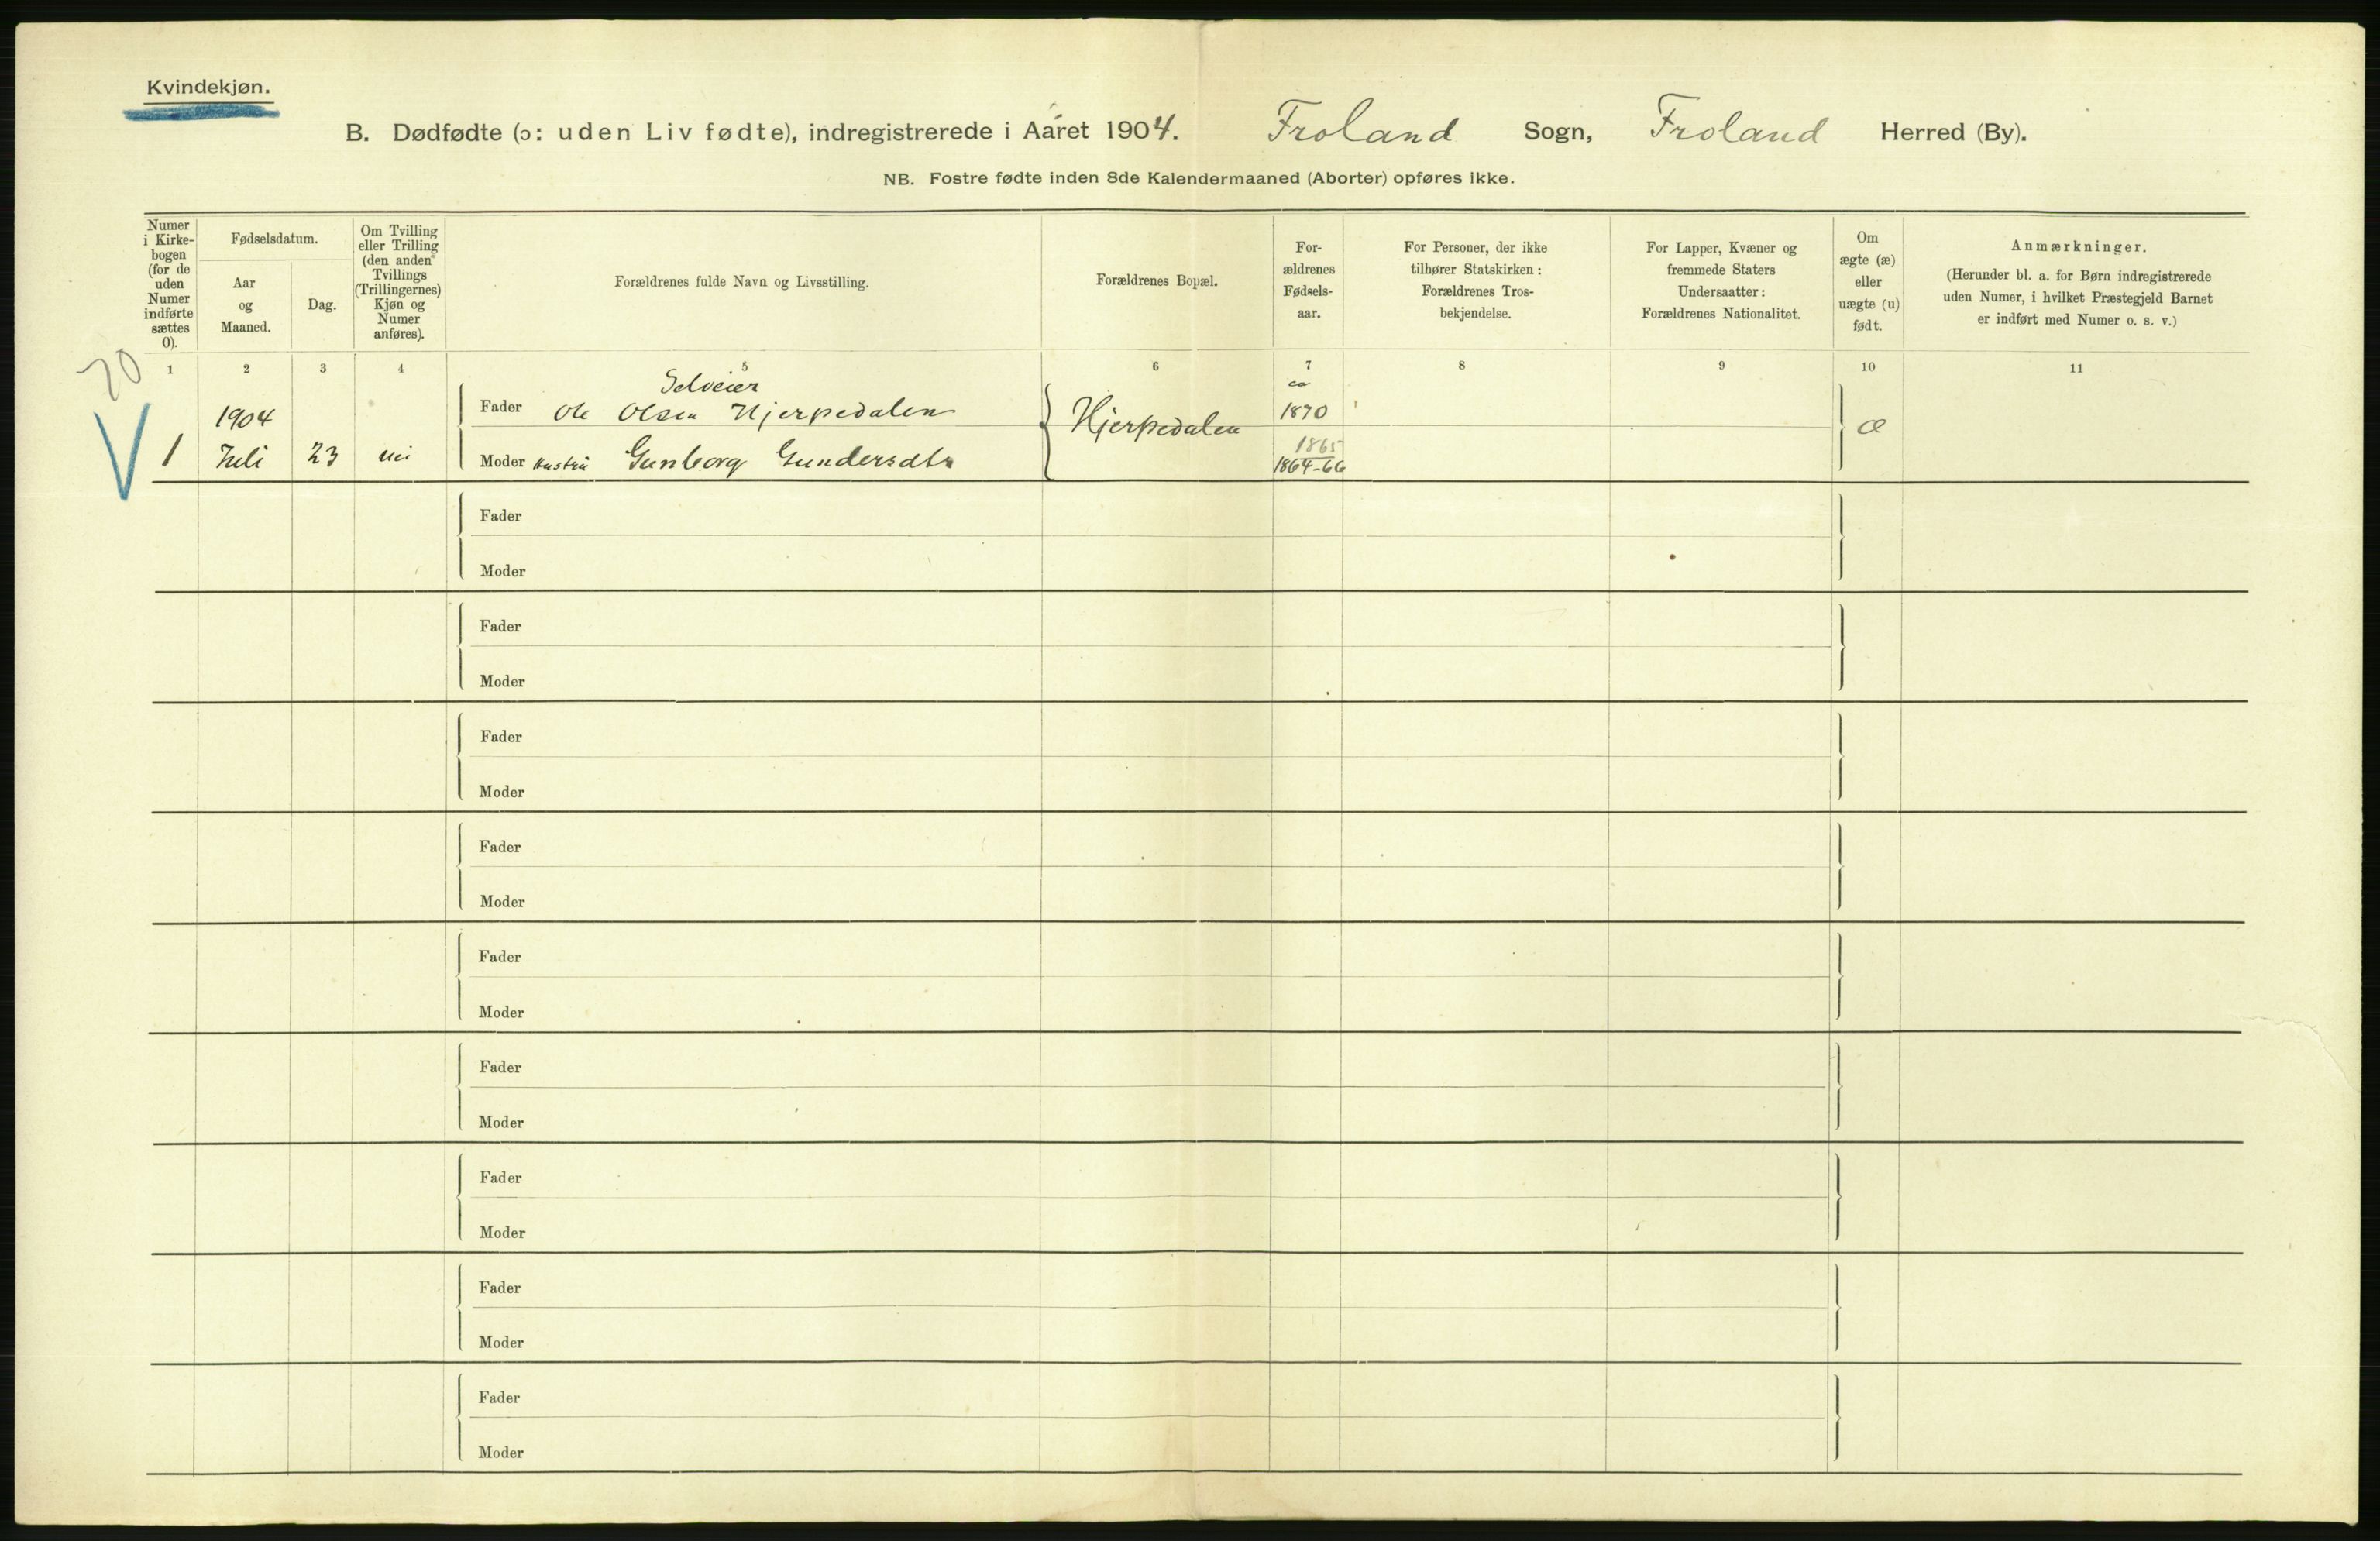 Kvindekjøn.
B. Dødfødte (ɔ: uden Liv fødte), indregistrerede i Aaret 1904. Froland Sogn, Froland Herred (By).
NB. Fostre fødte inden 8de Kalendermaaned (Aborter) opføres ikke.
Numer
i Kirke-
bogen
(for de
uden
Numer
indførte
sættes
0).
Fødselsdatum.
Aar
og
Maaned.
Dag.
Om Tvilling
eller Trilling
(den anden
Tvillings
(Trillingernes)
Kjøn og
Numer
anføres).
Forældrenes fulde Navn og Livsstilling.
Forældrenes Bopæl.
For-
ældrenes
Fødsels-
aar.
For Personer, der ikke
tilhører Statskirken:
Forældrenes Tros-
bekjendelse.
For Lapper, Kvæner og
fremmede Staters
Undersaatter:
Forældrenes Nationalitet.
Om
ægte (æ)
eller
uægte (u)
født.
Anmærkninger.
(Herunder bl. a. for Børn indregistrerede
uden Numer, i hvilket Præstegjeld Barnet
er indført med Numer o. s. v.)
1 2 3 4 5 6 7 8 9 10 11
20
V
1
1904
Juli
23
nei
Selveier
Fader Ole Olsen Hjerpedalen
Moder Hustru Gunborg Gundersdtr
Hjerpedalen
ca
1870
1865
1864-66
æ
Fader
Moder
Fader
Moder
Fader
Moder
Fader
Moder
Fader
Moder
Fader
Moder
Fader
Moder
Fader
Moder
Fader
Moder